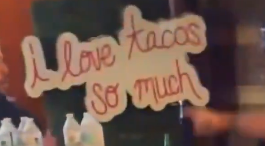 i love tacos
so much